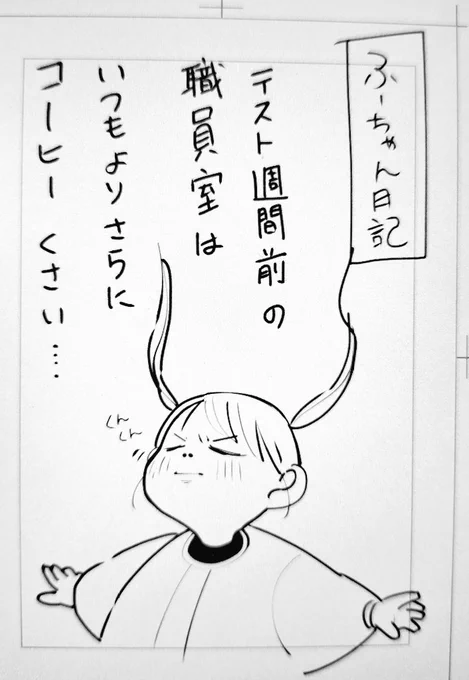 ふーちゃん日記
テスト週間前の
職員室は
いつもよりさらに
コーヒーくさい....
くん
くん